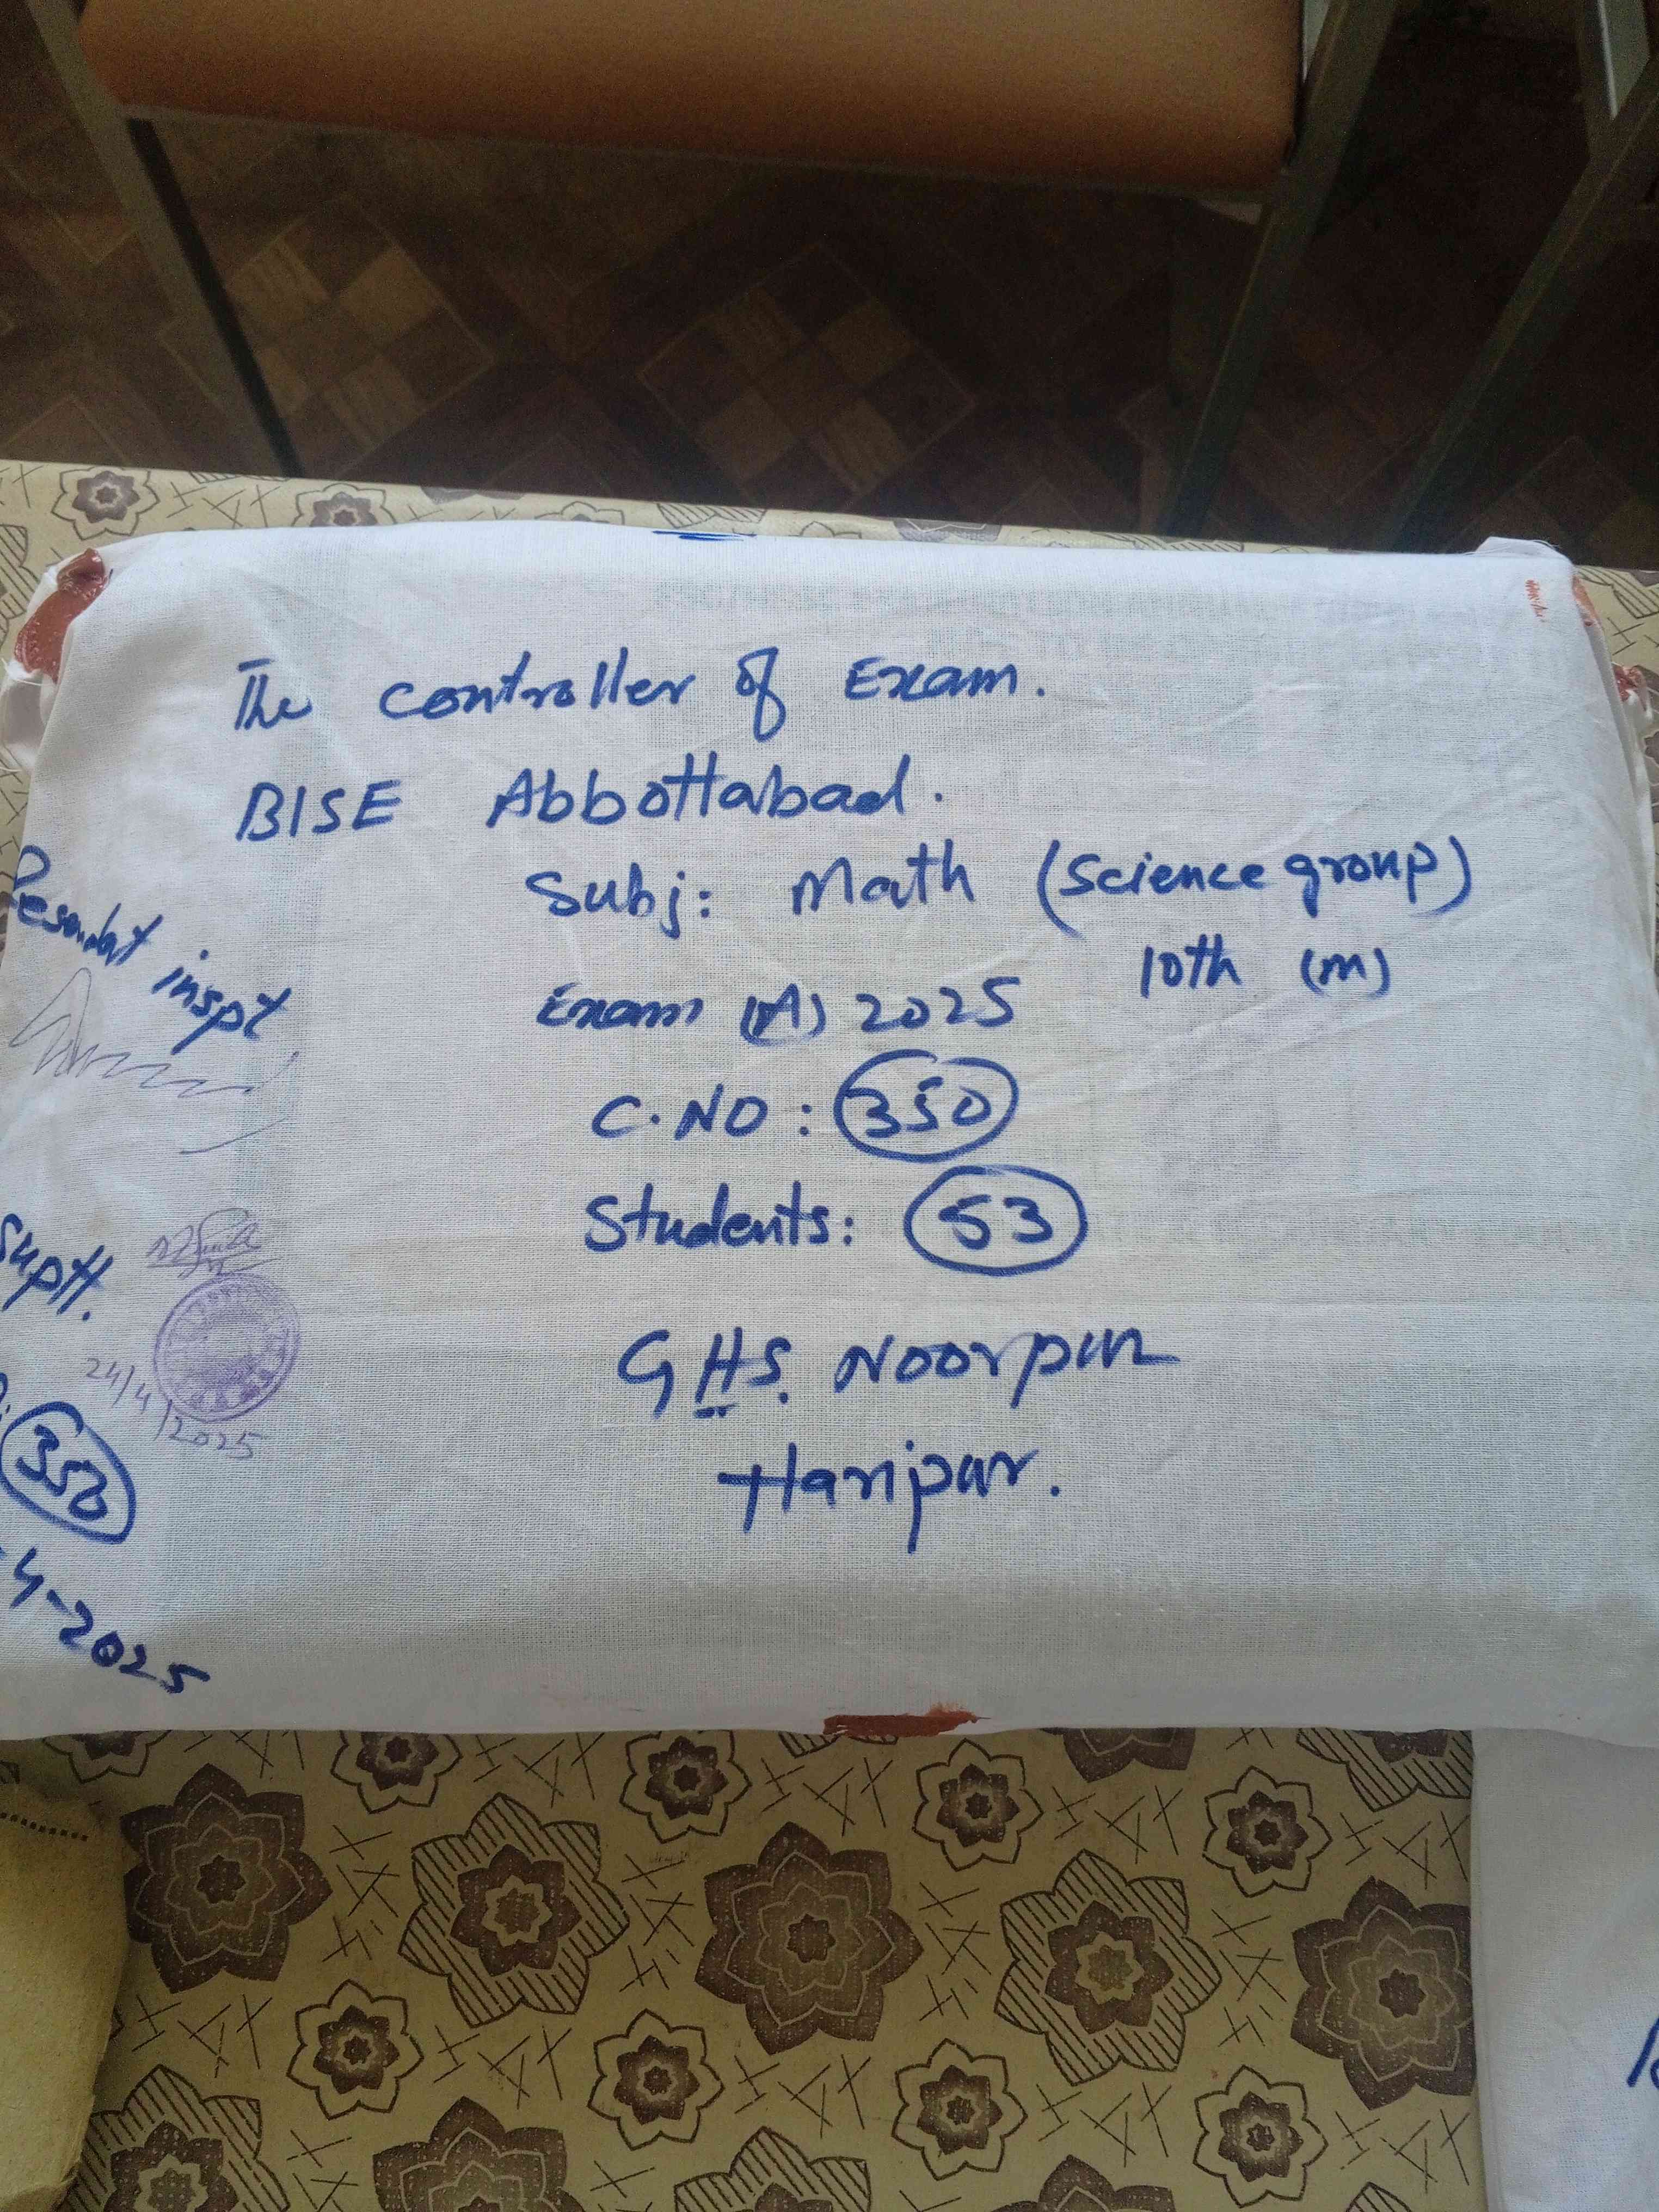 The controller of Exam.
BISE Abbottabad.
Subj: Math (Science group)
10th (m)
Exam (A) 2025
C.NO: 350
Students: 53
GHS. Noorpur
Haripur.
Resendat inspt
suptt.
24/4/2025
350
4-2025